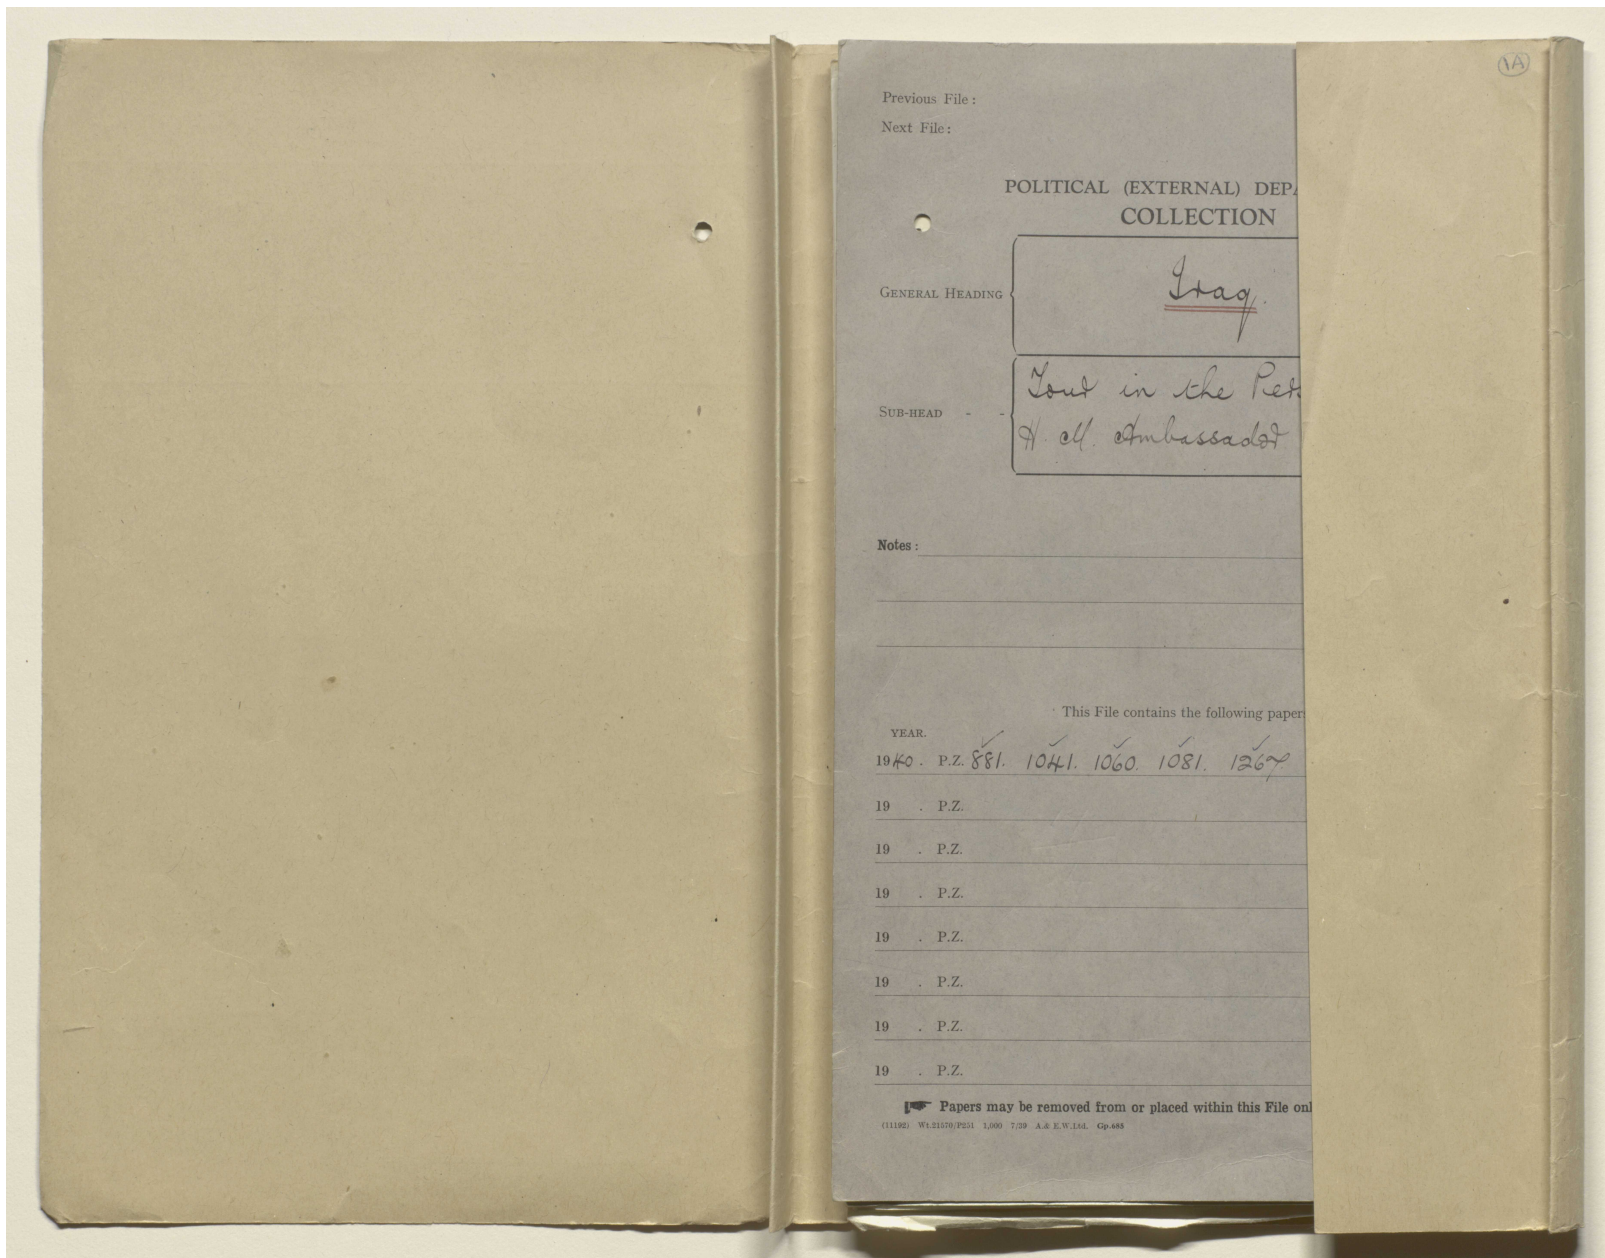 1A
Previous File :
Next File :
POLITICAL (EXTERNAL) DEPA
COLLECTION
GENERAL HEADING
Iraq.
SUB-HEAD - -
Tour in the Pers
H. M. Ambassador
Notes :
This File contains the following paper
YEAR.
1940 . P.Z. 881. 1041. 1060. 1081. 1267
19 . P.Z.
19 . P.Z.
19 . P.Z.
19 . P.Z.
19 . P.Z.
19 . P.Z.
19 . P.Z.
Papers may be removed from or placed within this File onl
(11192) Wt.21570/P251 1,000 7/39 A.& E.W.Ltd. Gp.685